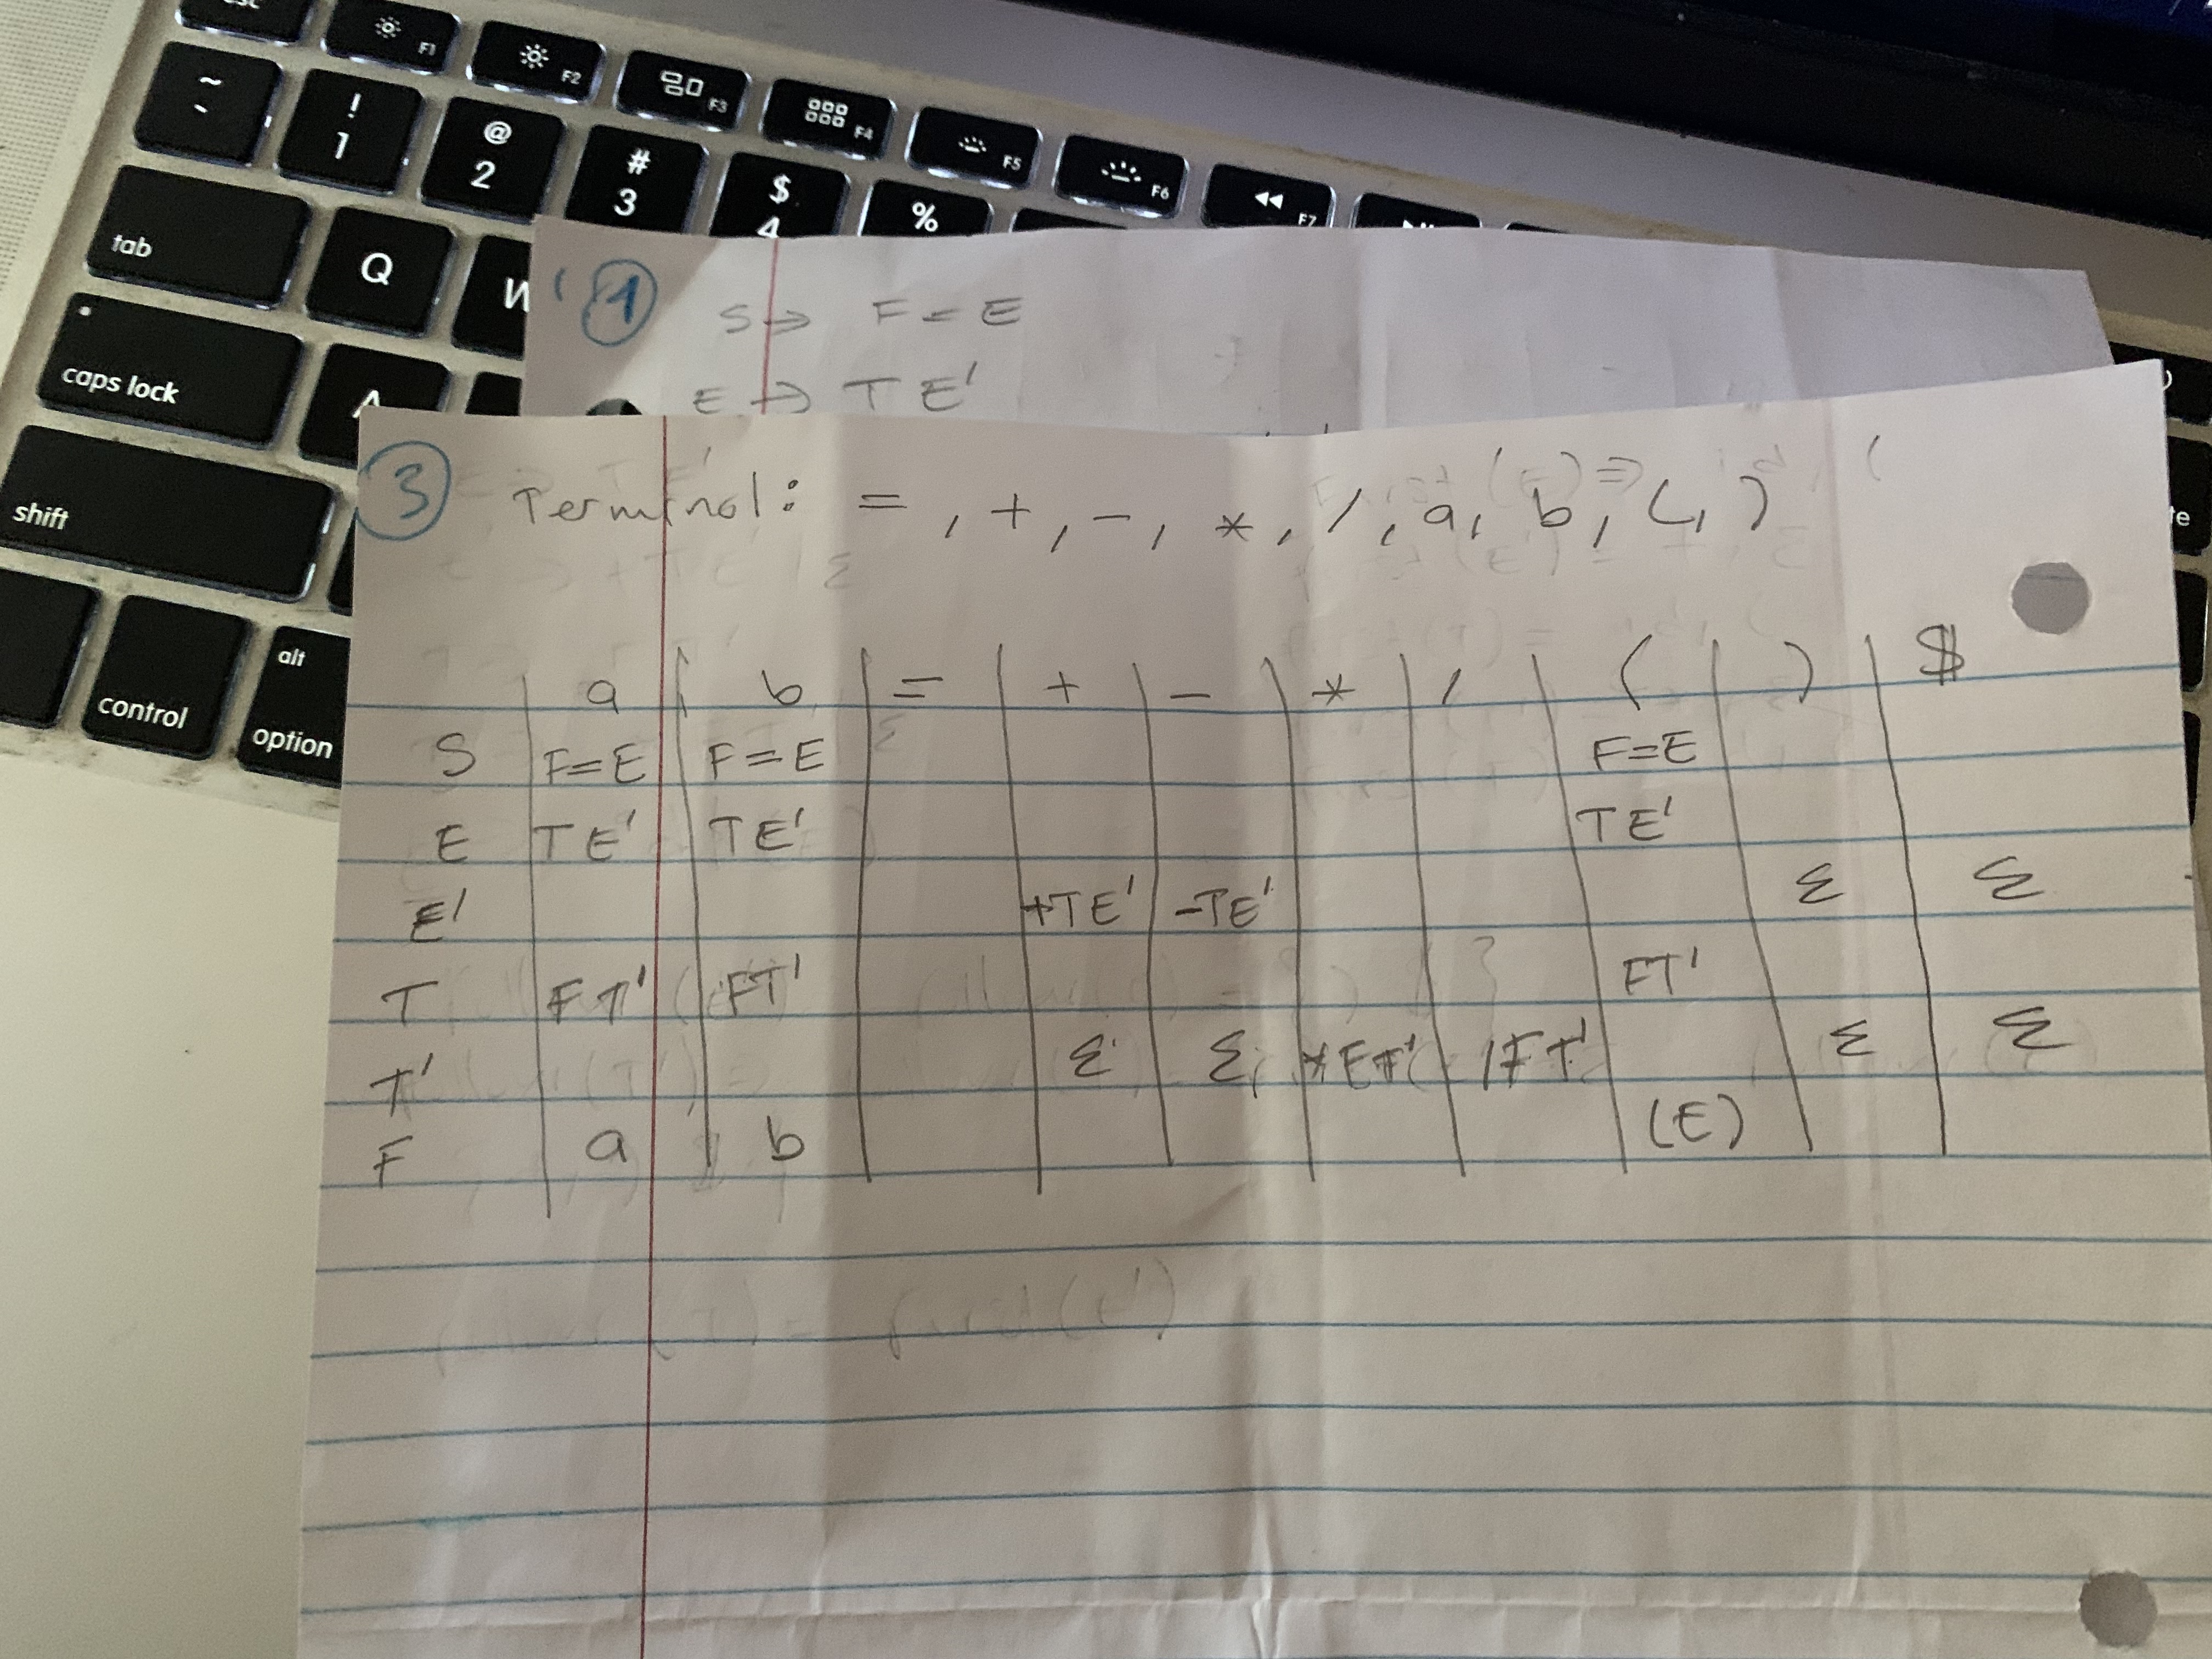 esc F1 F2 F3 F4 F5 F6 F7
~ ` ! 1 @ 2 # 3 $ 4 %
tab Q W
caps lock A
shift
control alt option
1 S → F = E
E → T E'
3 Terminal: =, +, -, *, /, a, b, (, )
a b = + - * / ( ) $
S F=E F=E F=E
E TE' TE' TE'
E' +TE' -TE' Ɛ Ɛ
T FT' FT' FT'
T' Ɛ Ɛ *ET' /FT' Ɛ Ɛ
F a b (E)